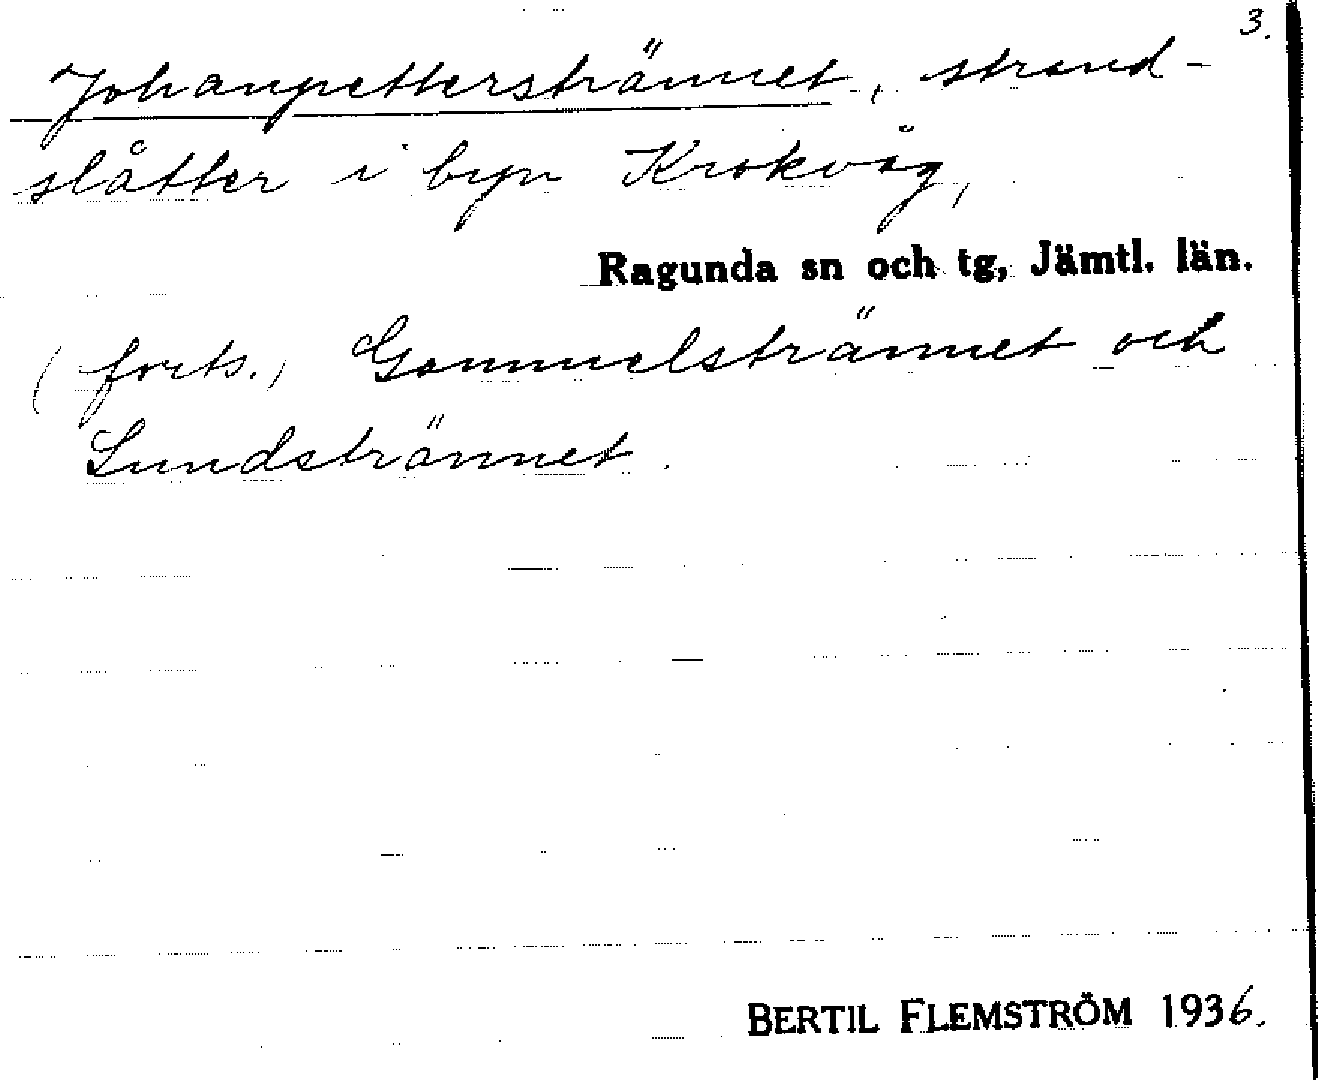 3.
Johanpetterstrännet, strand-
slåtter i byn Krokvåg,
Ragunda sn och tg, Jämtl. län.
(forts.) Gammelstrännet och
Lundstrännet.
BERTIL FLEMSTRÖM 1936.